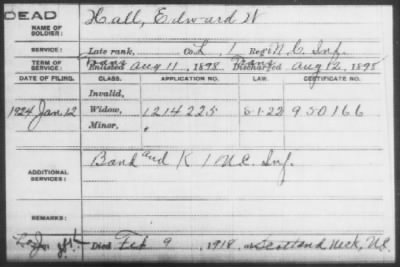 DEAD
NAME OF SOLDIER: Hall, Edward W
SERVICE: Late rank, Co. L 1 Reg't N.C. Inf.
TERM OF SERVICE: Enlisted Aug 11, 1898 Discharged Aug 12, 1898
DATE OF FILING. CLASS. APPLICATION NO. LAW. CERTIFICATE NO.
Invalid,
1924 Jan. 12 Widow, 1214225 5-1-22 950166
Minor,
ADDITIONAL SERVICES: Band and K 1 N.C. Inf.
REMARKS:
Died Feb 9, 1918, at Scotland Neck, N.C.